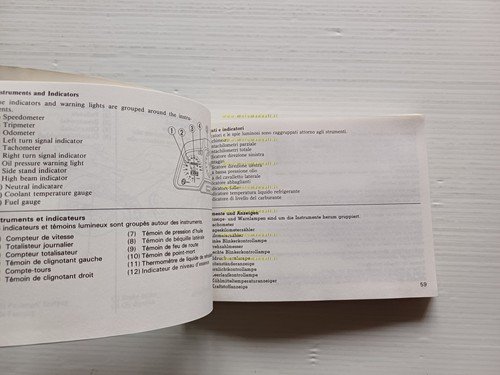 struments and Indicators
e indicators and warning lights are grouped around the instru-
ents.
Speedometer
Tripmeter
Odometer
Left turn signal indicator
Tachometer
Right turn signal indicator
Oil pressure warning light
Side stand indicator
High beam indicator
Neutral indicatare
) Coolant temperature gauge
) Fuel gauge
① ② ③ ④
struments et indicateurs
indicateurs et témoins lumineux sont groupés autour des instruments.
Compteur de vitesse
Totalisateur journalier
Compteur totalisateur
Témoin de clignotant gauche
Compte-tours
Témoin de clignotant droit
(7) Témoin de pression d'huile
(8) Témoin de béquille latérale
(9) Témoin de feu de route
(10) Témoin de point-mort
(11) Thermomètre de liquide de
(12) Indicateur de niveau d'essence
ti e indicatori
icatori e le spie luminosi sono raggruppati attorno agli strumenti.
tachilometri parziale
tachilometri totale
icatore direzione sinistra
icatore direzione destra
a bassa pressione olio
del cavalletto laterale
icatore abbaglianti
icatore temperatura liquido refrigerante
icatore di livello del carburante
mente und Anzeigen
und Warnlampen sind um die Instrumente herum gruppiert.
achometer
inke Blinkerkontrollampe
echte Blinkerkontrollampe
ldruckwarnlampe
eitenständeranzeige
ernlichtkontrollampe
eerlaufkontrollampe
ühlmitteltemperaturanzeiger
raftstoffanzeige
59